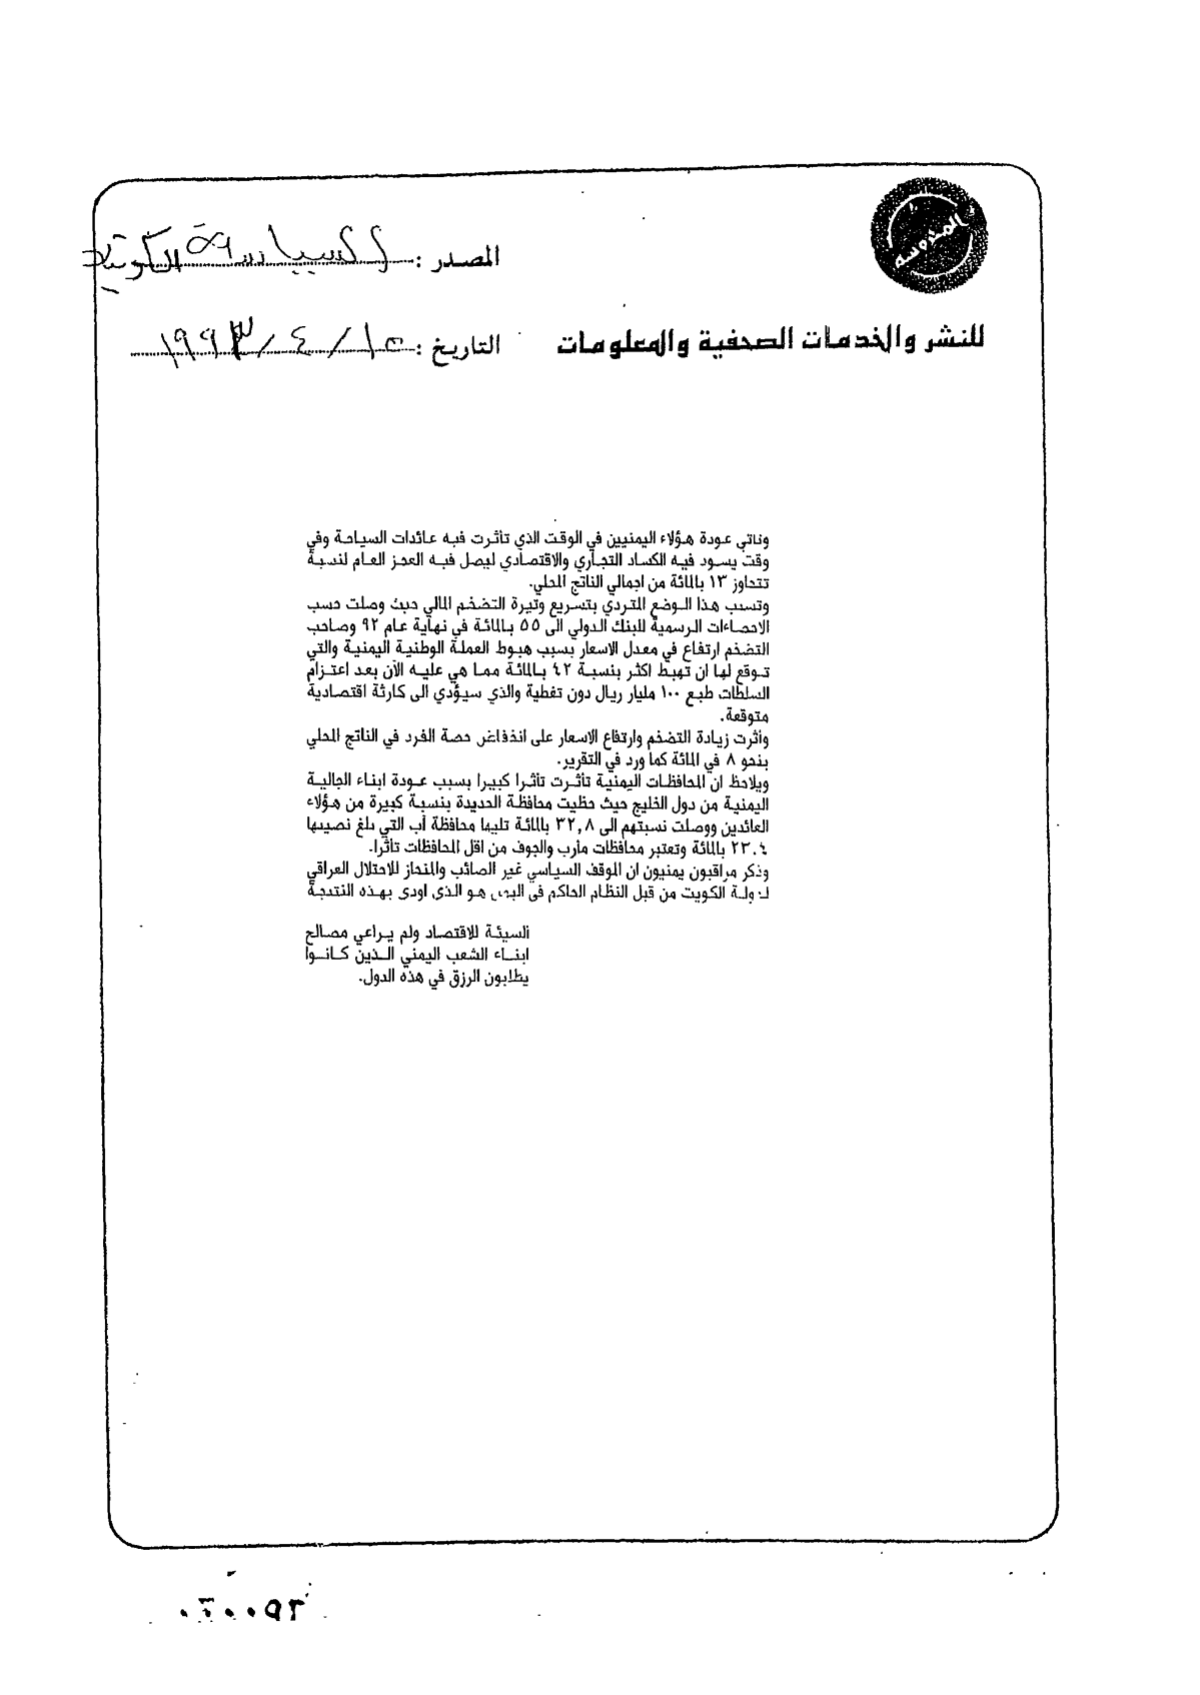 المصدر : السياسة الكويتية
للنشر والخدمات الصحفية والمعلومات
التاريخ : ١٥ / ٤ / ١٩٩٣
وتاتي عودة هؤلاء اليمنيين في الوقت الذي تأثرت فيه عائدات السياحة وفي
وقت يسود فيه الكساد التجاري والاقتصادي ليصل فيه العجز العام لنسبة
تتجاوز ١٣ بالمائة من اجمالي الناتج المحلي.
وتسبب هذا الوضع المتردي بتسريع وتيرة التضخم المالي حيث وصلت حسب
الاحصاءات الرسمية للبنك الدولي الى ٥٥ بالمائة في نهاية عام ٩٢ وصاحب
التضخم ارتفاع في معدل الاسعار بسبب هبوط العملة الوطنية اليمنية والتي
توقع لها ان تهبط اكثر بنسبة ٤٢ بالمائة مما هي عليه الآن بعد اعتزام
السلطات طبع ١٠٠ مليار ريال دون تغطية والذي سيؤدي الى كارثة اقتصادية
متوقعة.
واثرت زيادة التضخم وارتفاع الاسعار على انخفاض حصة الفرد في الناتج المحلي
بنحو ٨ في المائة كما ورد في التقرير.
ويلاحظ ان المحافظات اليمنية تأثرت تأثرا كبيرا بسبب عودة ابناء الجالية
اليمنية من دول الخليج حيث حظيت محافظة الحديدة بنسبة كبيرة من هؤلاء
العائدين ووصلت نسبتهم الى ٣٢,٨ بالمائة تليها محافظة أب التي بلغ نصيبها
٢٣.٤ بالمائة وتعتبر محافظات مأرب والجوف من اقل المحافظات تأثرا.
وذكر مراقبون يمنيون ان الموقف السياسي غير الصائب والمنحاز للاحتلال العراقي
لدولة الكويت من قبل النظام الحاكم في اليمن هو الذي اودى بهذه النتيجة
السيئة للاقتصاد ولم يراعي مصالح
ابناء الشعب اليمني الذين كانوا
يطلبون الرزق في هذه الدول.